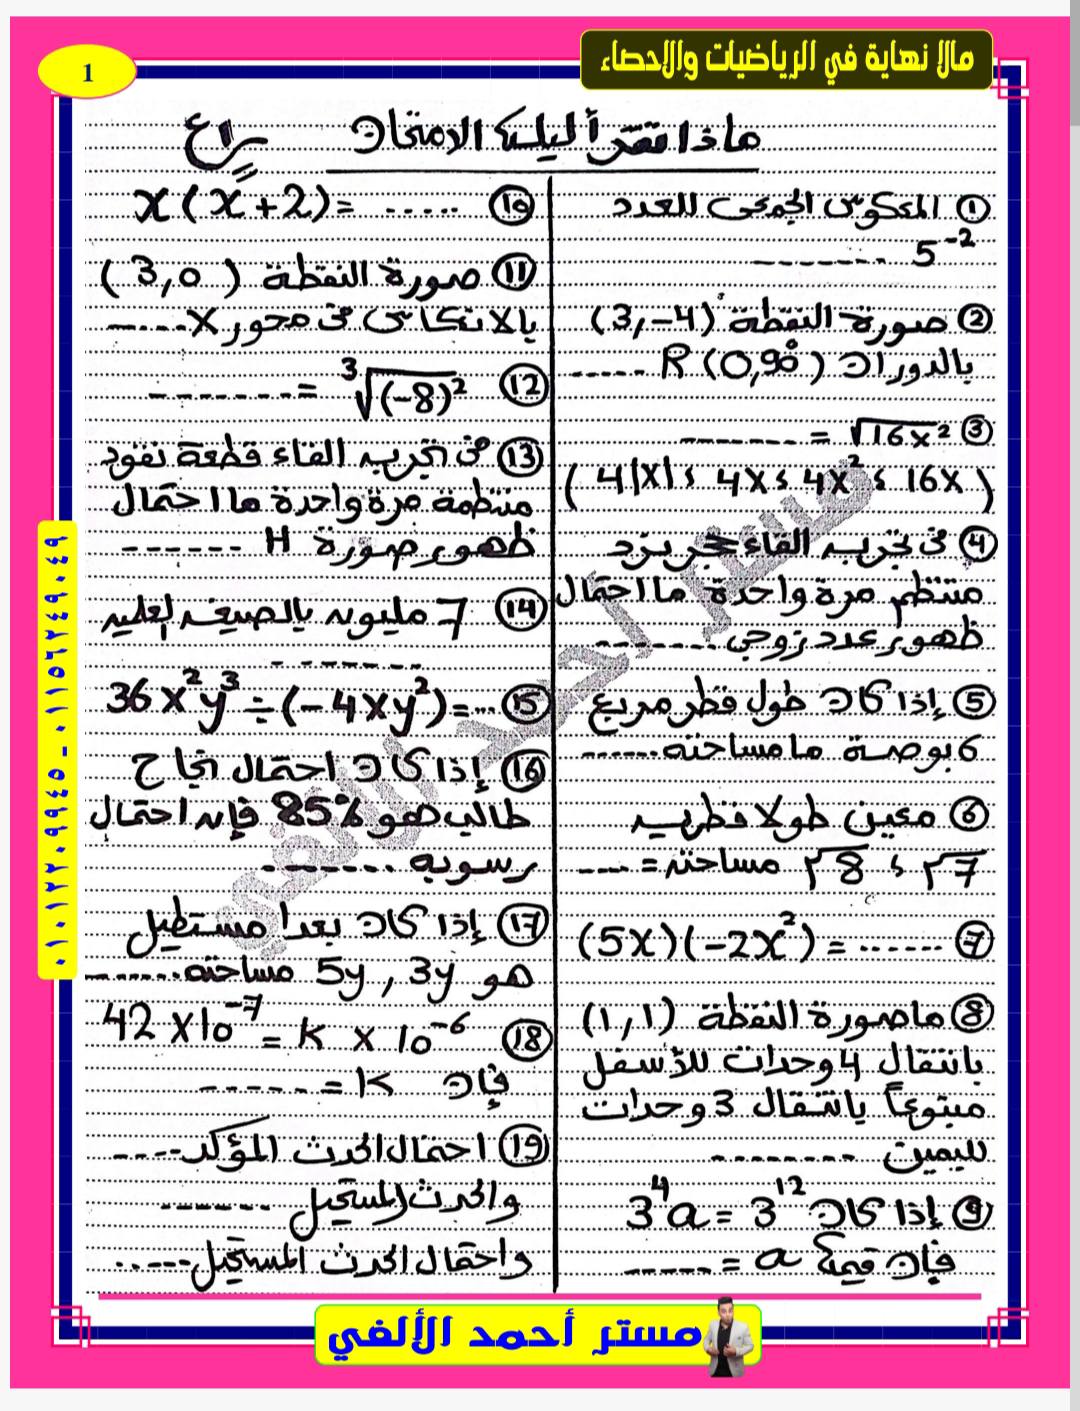 مالا نهاية في الرياضيات والاحصاء
1
ماذا تقرأ ليلة الامتحان
① المعكوس الجمعى للعدد
5⁻² -------
② صورة النقطة (3,-4)
بالدوران R(0,90°) -----
③ √16x² = -------
( 4|x| ، 4x ، 4x² ، 16x )
④ فى تجربه القاء حجر نرد
منتظم مرة واحدة ما احتمال
ظهور عدد زوجى -------
⑤ إذا كان طول قطر مربع
6 بوصة ما مساحته ------
⑥ معين طولا قطريه
√7 ، √8 مساحته = ----
⑦ (5x)(-2x²) = ......
⑧ ما صورة النقطة (1,1)
بانتقال 4 وحدات للأسفل
متبوعاً بانتقال 3 وحدات
لليمين --------
⑨ إذا كان 3⁴a = 3¹²
فإن قيمة a = -----
⑩ x(x+2) = .....
⑪ صورة النقطة (3,0)
بالانعكاس فى محور x -----
⑫ ³√(-8)² = -------
⑬ فى تجربه القاء قطعة نقود
منتظمة مرة واحدة ما احتمال
ظهور صورة H ------
⑭ 7 مليون بالصيغه العلميه
-------
⑮ 36x²y³ ÷ (-4xy²) = ...
⑯ إذا كان احتمال نجاح
طالب هو 85% فإن احتمال
رسوبه -------
⑰ إذا كان بعدا مستطيل
هو 5y , 3y مساحته ------
⑱ 42 x 10⁻⁷ = K x 10⁻⁶
فإن K = ------
⑲ احتمال الحدث المؤكد ----
والحدث المستحيل ------
واحتمال الحدث المستحيل -----
٠١٠١٢٢٠٩٩٤٥ - ٠١١٥٦٢٤٩٠٤٩
مستر أحمد الألفي
مستر أحمد الألفي